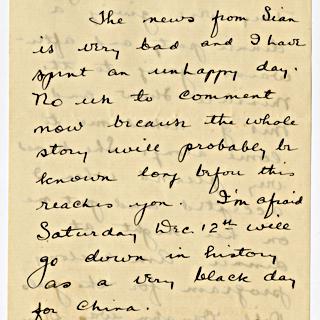 The news from Sian
is very bad and I have
spent an unhappy day.
No use to comment
now because the whole
story will probably be
known long before this
reaches you. I'm afraid
Saturday Dec. 12th will
go down in history
as a very black day
for China.